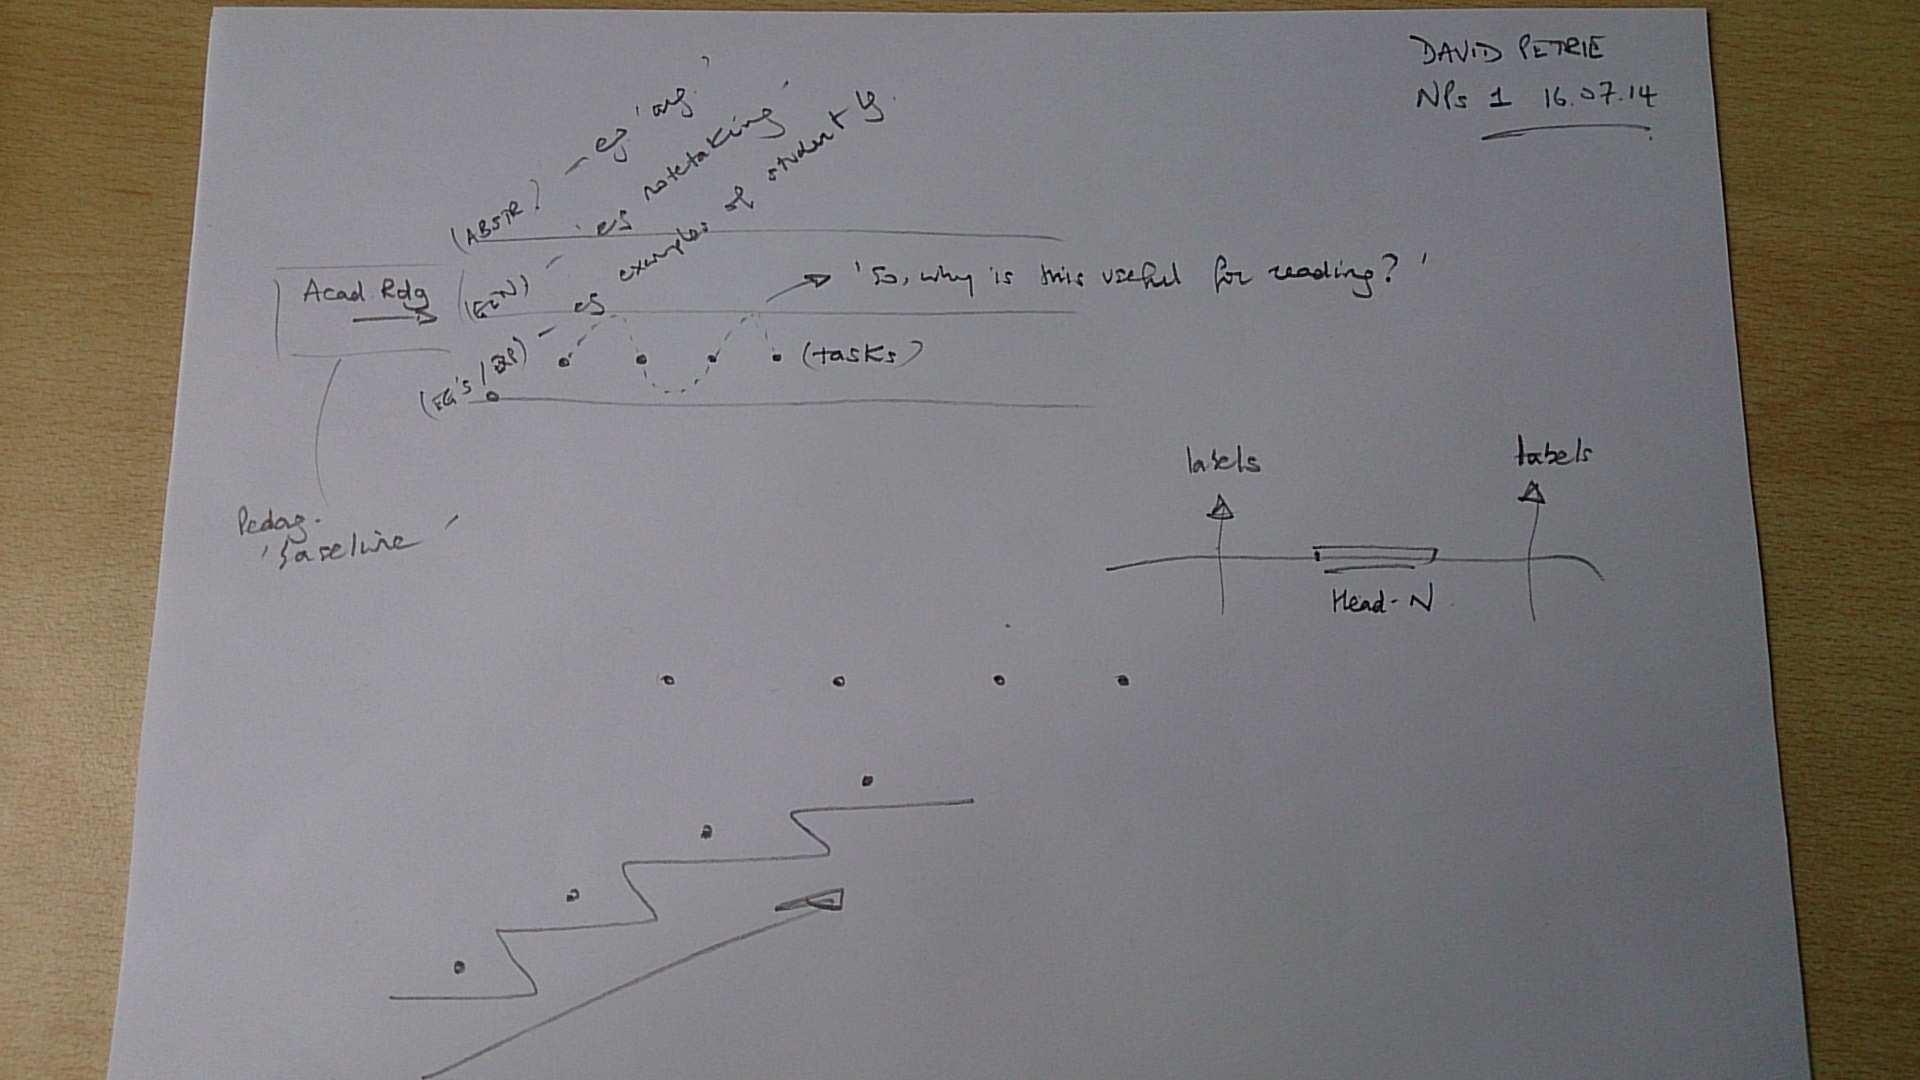 DAVID PETRIE
NPs 1 16.07.14
(ABSTR) - eg 'org.'
- eg notetaking'
(EG'S / - eg examples of student
Acad. Rdg
'So, why is this useful for reading?'
(tasks)
Pedag.
'baseline'
labels
labels
Head-N